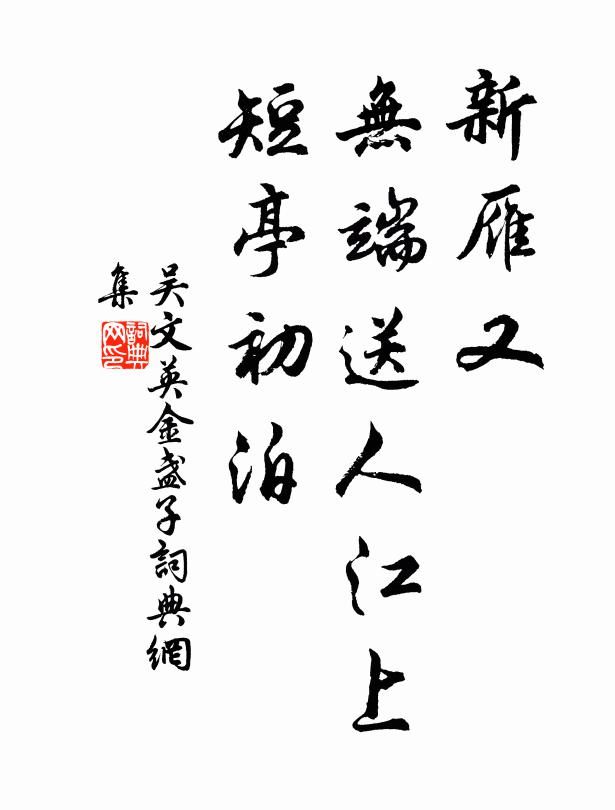 新雁又
無端送人江上
短亭初泊
吳文英金盞子詞典網
集
詞典
网印